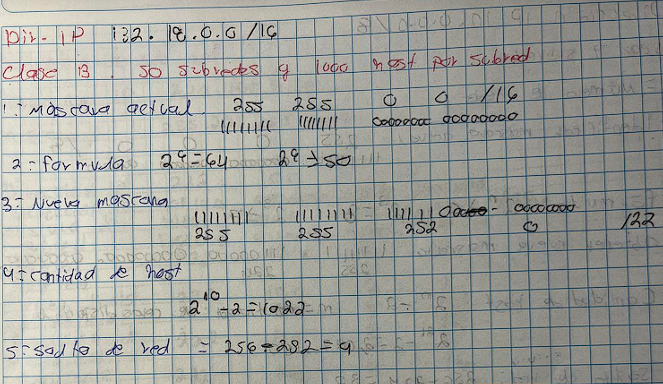 Dir- IP 132.18.0.0/16
Clase B. 50 subredes y 1000 host por subred
1= mascara actual 255 255 0 0 /16
11111111 11111111 00000000 00000000
2= formula 2^6=64 2^6≥50
3= Nueva mascara
11111111 11111111 11111100 00000000
255 255 252 0 /22
4= cantidad de host
2^10-2=1022
5= salto de red = 256-252=4